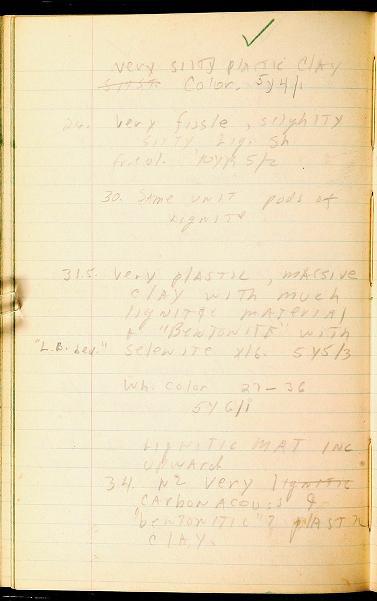 very silty plastic clay
Color. 5y4/1
26. Very fissle, slightly
silty lig. sh
10YR 5/2
30. Same unit pods of
lignite
31.5. Very plastic, massive
clay with much
lignitic material
& "Bentonite" with
"L.B. key." selenite xls. 5y5/3
Wh. color 27-36
5y6/1
Lignitic mat inc
upward
34. N2 very lignitic
carbonacous &
"bentonitic"? plastic
clay.